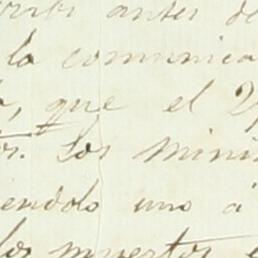 antes de
la comunica
que el
Los mini
iendolo uno á
los muertos